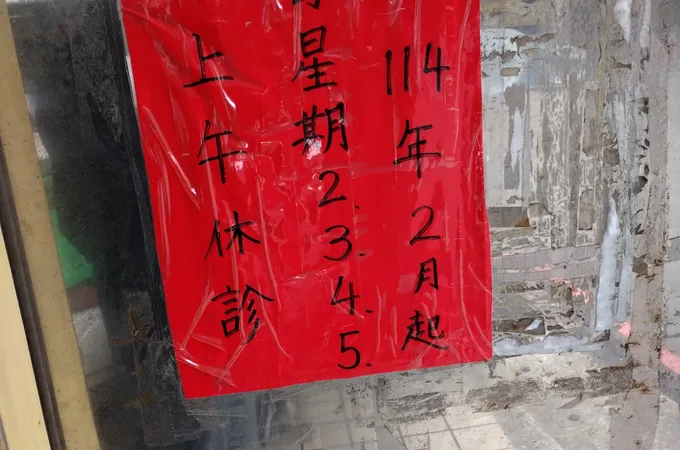 114年2月起
星期2.3.4.5.
上午休診